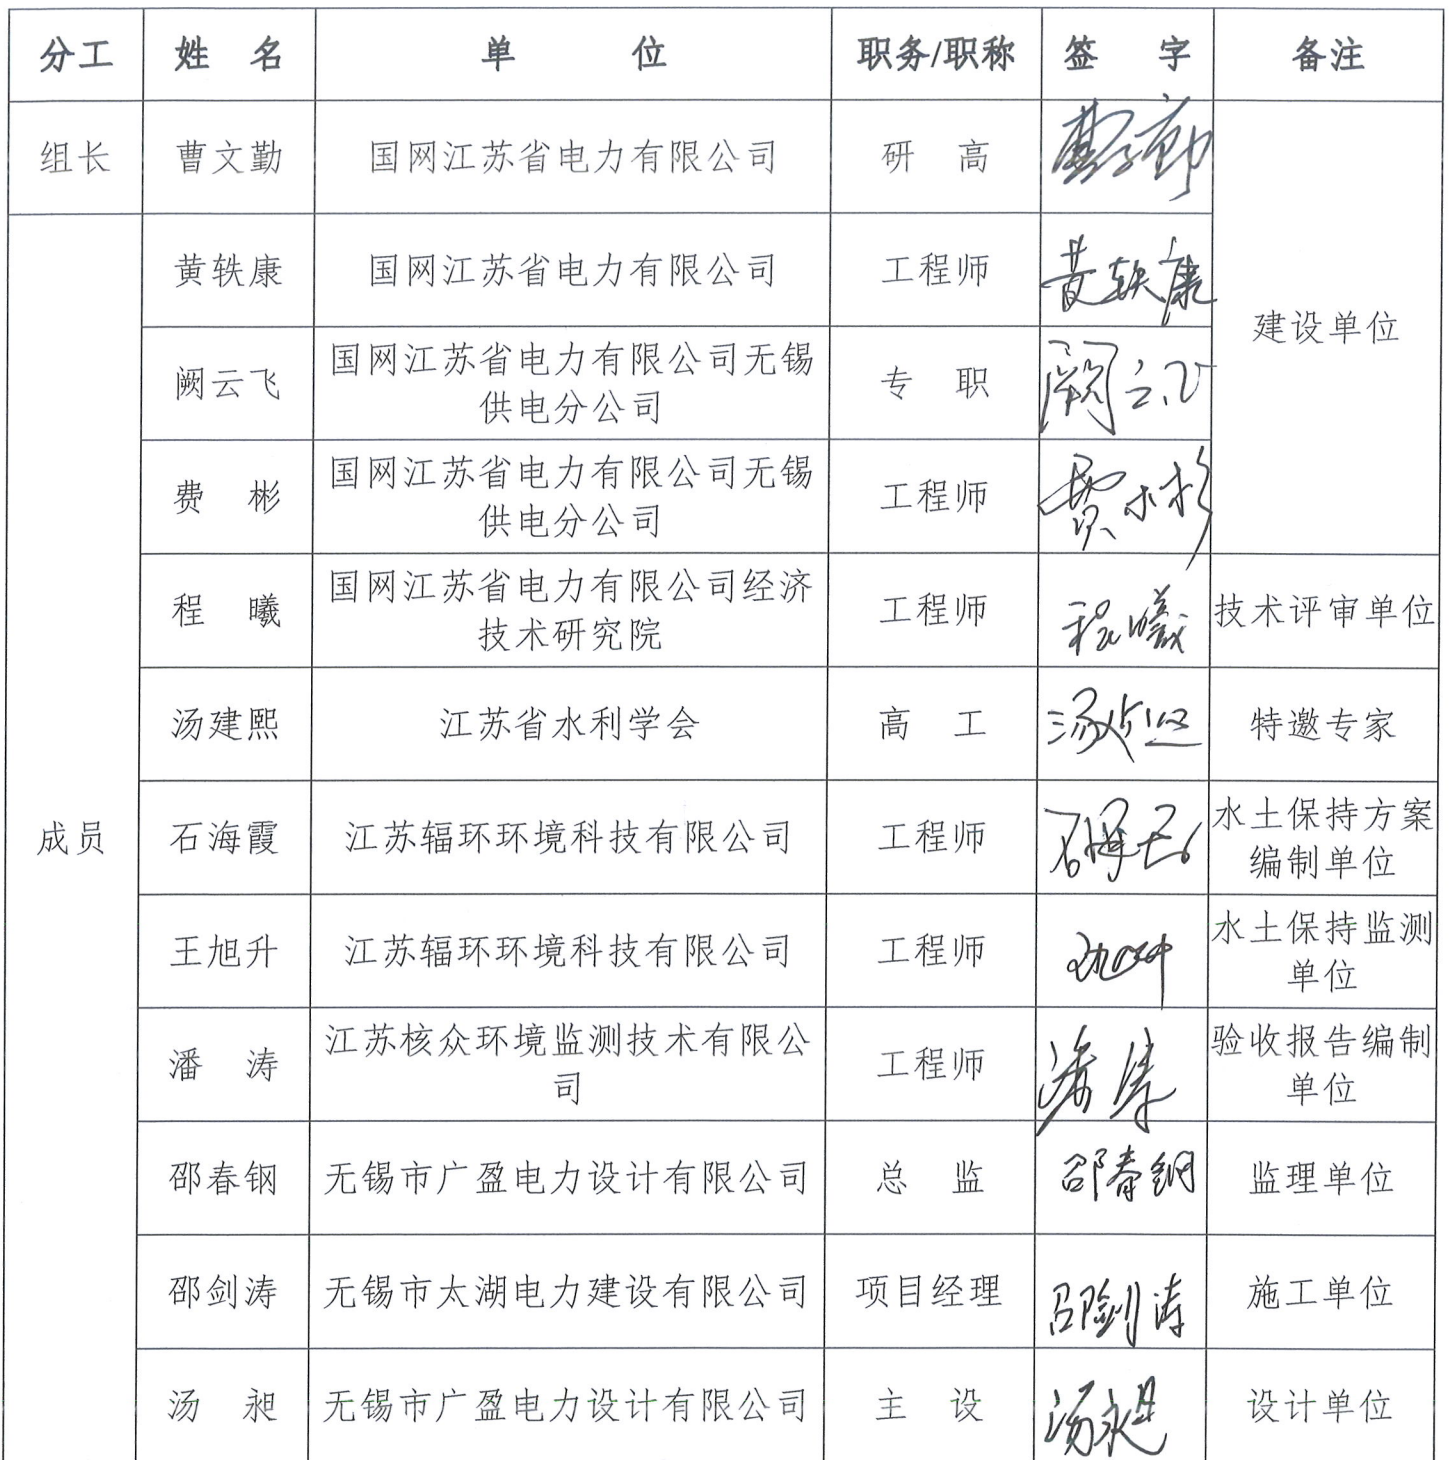 分工 姓 名 单 位 职务/职称 签 字 备注
组长 曹文勤 国网江苏省电力有限公司 研 高 曹文勤
黄轶康 国网江苏省电力有限公司 工程师 黄轶康
建设单位
阙云飞 国网江苏省电力有限公司无锡
供电分公司 专 职 阙云飞
费 彬 国网江苏省电力有限公司无锡
供电分公司 工程师 费彬
程 曦 国网江苏省电力有限公司经济
技术研究院 工程师 程曦 技术评审单位
汤建熙 江苏省水利学会 高 工 汤建熙 特邀专家
成员
石海霞 江苏辐环环境科技有限公司 工程师 石海霞 水土保持方案
编制单位
王旭升 江苏辐环环境科技有限公司 工程师 王旭升 水土保持监测
单位
潘 涛 江苏核众环境监测技术有限公
司 工程师 潘涛 验收报告编制
单位
邵春钢 无锡市广盈电力设计有限公司 总 监 邵春钢 监理单位
邵剑涛 无锡市太湖电力建设有限公司 项目经理 邵剑涛 施工单位
汤 昶 无锡市广盈电力设计有限公司 主 设 汤昶 设计单位